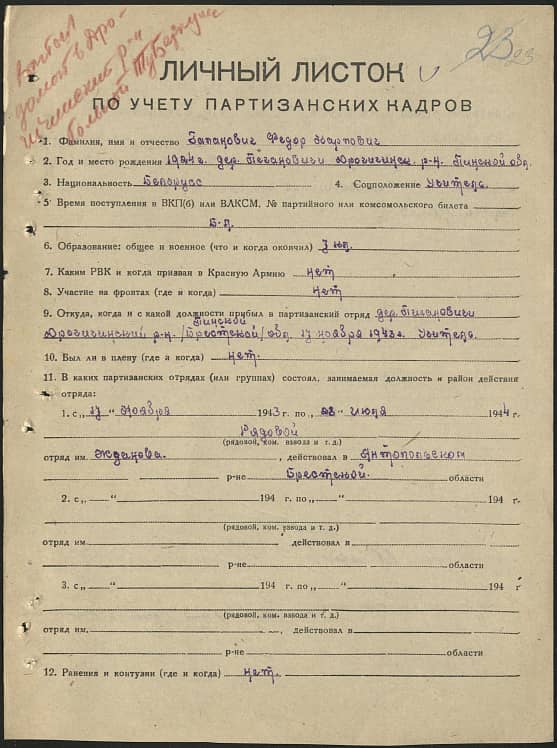 выбыл
домой в Дро-
гичинский р-н
больной туберкулез
23 23
ЛИЧНЫЙ ЛИСТОК
ПО УЧЕТУ ПАРТИЗАНСКИХ КАДРОВ
1. Фамилия, имя и отчество Гапанович Федор Карпович
2. Год и место рождения 1924 г. дер. Тегановичи Дрогичинск. р-н. Пинской обл.
3. Национальность Белорусс 4. Соцположение Учитель.
5 Время поступления в ВКП(б) или ВЛКСМ, № партийного или комсомольского билета
Б-п.
6. Образование: общее и военное (что и когда окончил) 7 кл.
7. Каким РВК и когда призван в Красную Армию нет
8. Участие на фронтах (где и когда) нет
9. Откуда, когда и с какой должности прибыл в партизанский отряд дер. Тегановичи
Пинской
Дрогичинский р-н /Брестской/ обл. 17 ноября 1943 г. Учитель.
10. Был ли в плену (где а когда) нет.
11. В каких партизанских отрядах (или группах) состоял, занимаемая должность и район действия
отряда:
1. с „17“ Ноября 1943 г. по „ “ Июля 1944 г.
Рядовой
(рядовой, ком. взвода и т. д.)
отряд им. Жданова. , действовал в Антопольском
р-не Брестской. области
2. с „ “ 194 г. по „ “ 194 г.
(рядовой, ком. взвода и т. д.)
отряд им. , действовал в
р-не области
3. с „ “ 194 г. по „ “ 194 г
(рядовой, ком. взвода и т. д.)
отряд им. , действовал в
р-не области
12. Ранения и контузии (где и когда) нет.